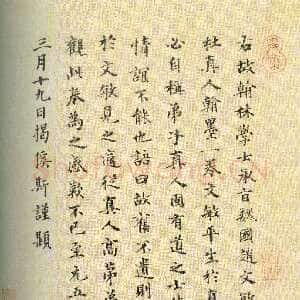 右故翰林學士承旨魏國趙文敏
杜真人翰墨一卷文敏平生於真
必自稱弟子真人固有道之士
情誼不能也語曰故舊不遺則
於文敏見之適從真人高弟
觀此卷為之感歎不已至元五
三月十九日揭傒斯謹題